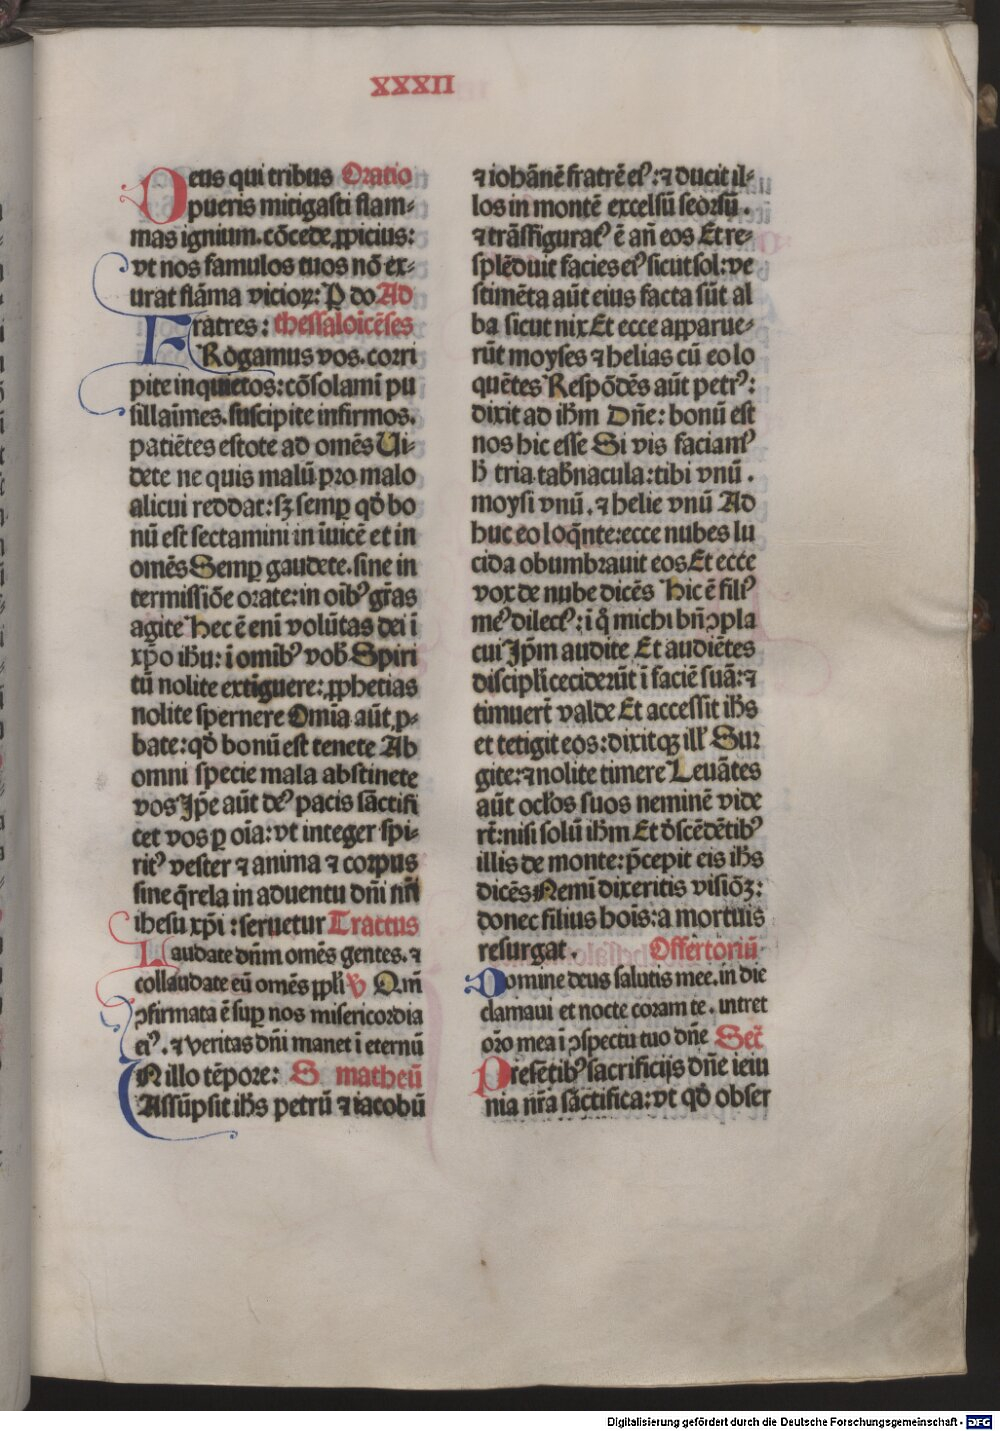 XXXII
Deus qui tribus Oratio
pueris mitigasti flam⸗
mas ignium.cōcede ꝓpicius:
vt nos famulos tuos nō ex⸗
urat flāma vicioꝝ: P do Ad
Fratres: thessaloīcēses
Rogamus vos.corri
pite inquietos:cōsolamī pu
sillaīmes.suscipite infirmos.
patiētes estote ad omēs Ui⸗
dete ne quis malū pro malo
alicui reddat:sꝫ semꝑ qđ bo
nū est sectamini in īuicē et in
omēs Semꝑ gaudete.sine in
termissiōe orate:in oībꝰ gr̄as
agite Hec ē enī volūtas dei ī
xp̄o ihū:ī omībꝰ vob̄ Spiri
tū nolite extīguere:ꝓphetias
nolite spernere Omīa aūt ꝓ⸗
bate:qđ bonū est tenete Ab
omni specie mala abstinete
vos Ip̄e aūt deꝰ pacis sāctifi
cet vos ꝑ oīa:vt integer spi⸗
ritꝰ vester ⁊ anima ⁊ corpus
sine q̄rela in aduentu dn̄i nr̄i
ihesu xp̄i:seruetur Tractus
Laudate dn̄m omēs gentes.⁊
collaudate eū omēs ꝓpl̄i V Qm̄
ꝯfirmata ē suꝑ nos misericordia
eiꝰ.⁊ veritas dn̄i manet ī eternū
Nillo tēpore: S. matheū
Assūpsit ih̄s petrū ⁊ iacobū
⁊ iohānē fratrē eiꝰ:⁊ ducit il⸗
los in montē excelsū seorsū.
⁊ trāsfiguratꝰ ē añ eos Et re⸗
splēduit facies eiꝰ sicut sol:ve
stimēta aūt eius facta sūt al
ba sicut nix Et ecce apparue⸗
rūt moyses ⁊ helias cū eo lo
quētes Respōdēs aūt petrꝰ:
dixit ad ih̄m Dn̄e: bonū est
nos hic esse Si vis faciamꝰ
h̄ tria tab̄nacula:tibi vnū.
moysi vnū.⁊ helie vnū Ad
huc eo loq̄nte:ecce nubes lu
cida obumbrauit eos Et ecce
vox de nube dicēs Hic ē filiꝰ
meꝰ dilectꝰ:ī q̊ michi bn̄ ꝯpla
cui Ip̄m audite Et audiētes
discipl̄i ceciderūt ī faciē suā:⁊
timuert̄ valde Et accessit ih̄s
et tetigit eos:dixitqꝫ illꝰ Sur
gite:⁊ nolite timere Leuātes
aūt ocl̄os suos neminē vide
rt̄:nisi solū ih̄m Et d̄scēdētibꝰ
illis de monte:p̄cepit eis ih̄s
dicēs Nemī dixeritis visiōꝫ:
donec filius hoīs:a mortuis
resurgat. Offertoriū
Domine deus salutis mee.in die
clamaui et nocte coram te.intret
or̄o mea ī ꝯspectu tuo dn̄e Secr̄
Presētibꝰ sacrificijs dn̄e ieiu
nia nr̄a sāctifica:vt qđ obser
Digitalisierung gefördert durch die Deutsche Forschungsgemeinschaft - DFG